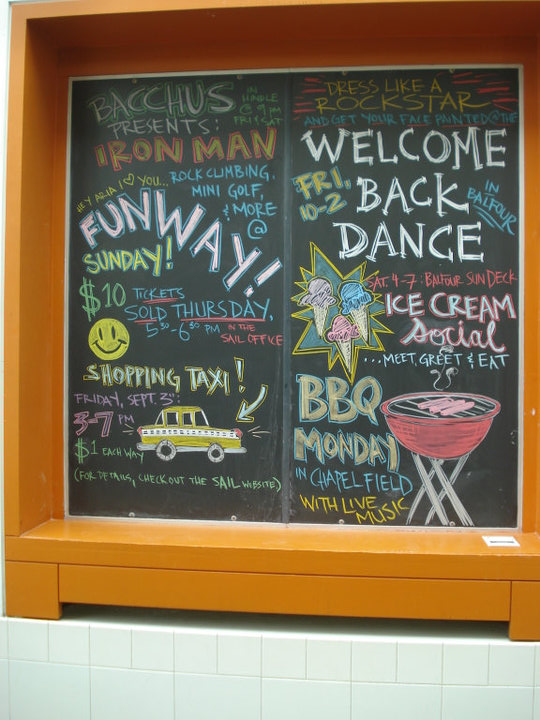 BACCHUS
IN HINDLE
@ 9 PM
FRI & SAT
PRESENTS:
IRON MAN
HEY ARIA I ♡ YOU...
ROCK CLIMBING,
MINI GOLF,
& MORE
@
FUNWAY!
SUNDAY!
$10 TICKETS
SOLD THURSDAY,
5³⁰-6³⁰ PM IN THE
SAIL OFFICE
SHOPPING TAXI!
FRIDAY, SEPT. 3RD:
3-7 PM
$1 EACH WAY
(FOR DETAILS, CHECK OUT THE SAIL WEBSITE)
DRESS LIKE A
ROCKSTAR
AND GET YOUR FACE PAINTED @ THE
WELCOME
FRI,
10-2
BACK
IN
BALFOUR
DANCE
SAT. 4-7: BALFOUR SUN DECK
ICE CREAM
Social
...MEET, GREET & EAT
BBQ
MONDAY
IN CHAPEL FIELD
WITH LIVE
MUSIC